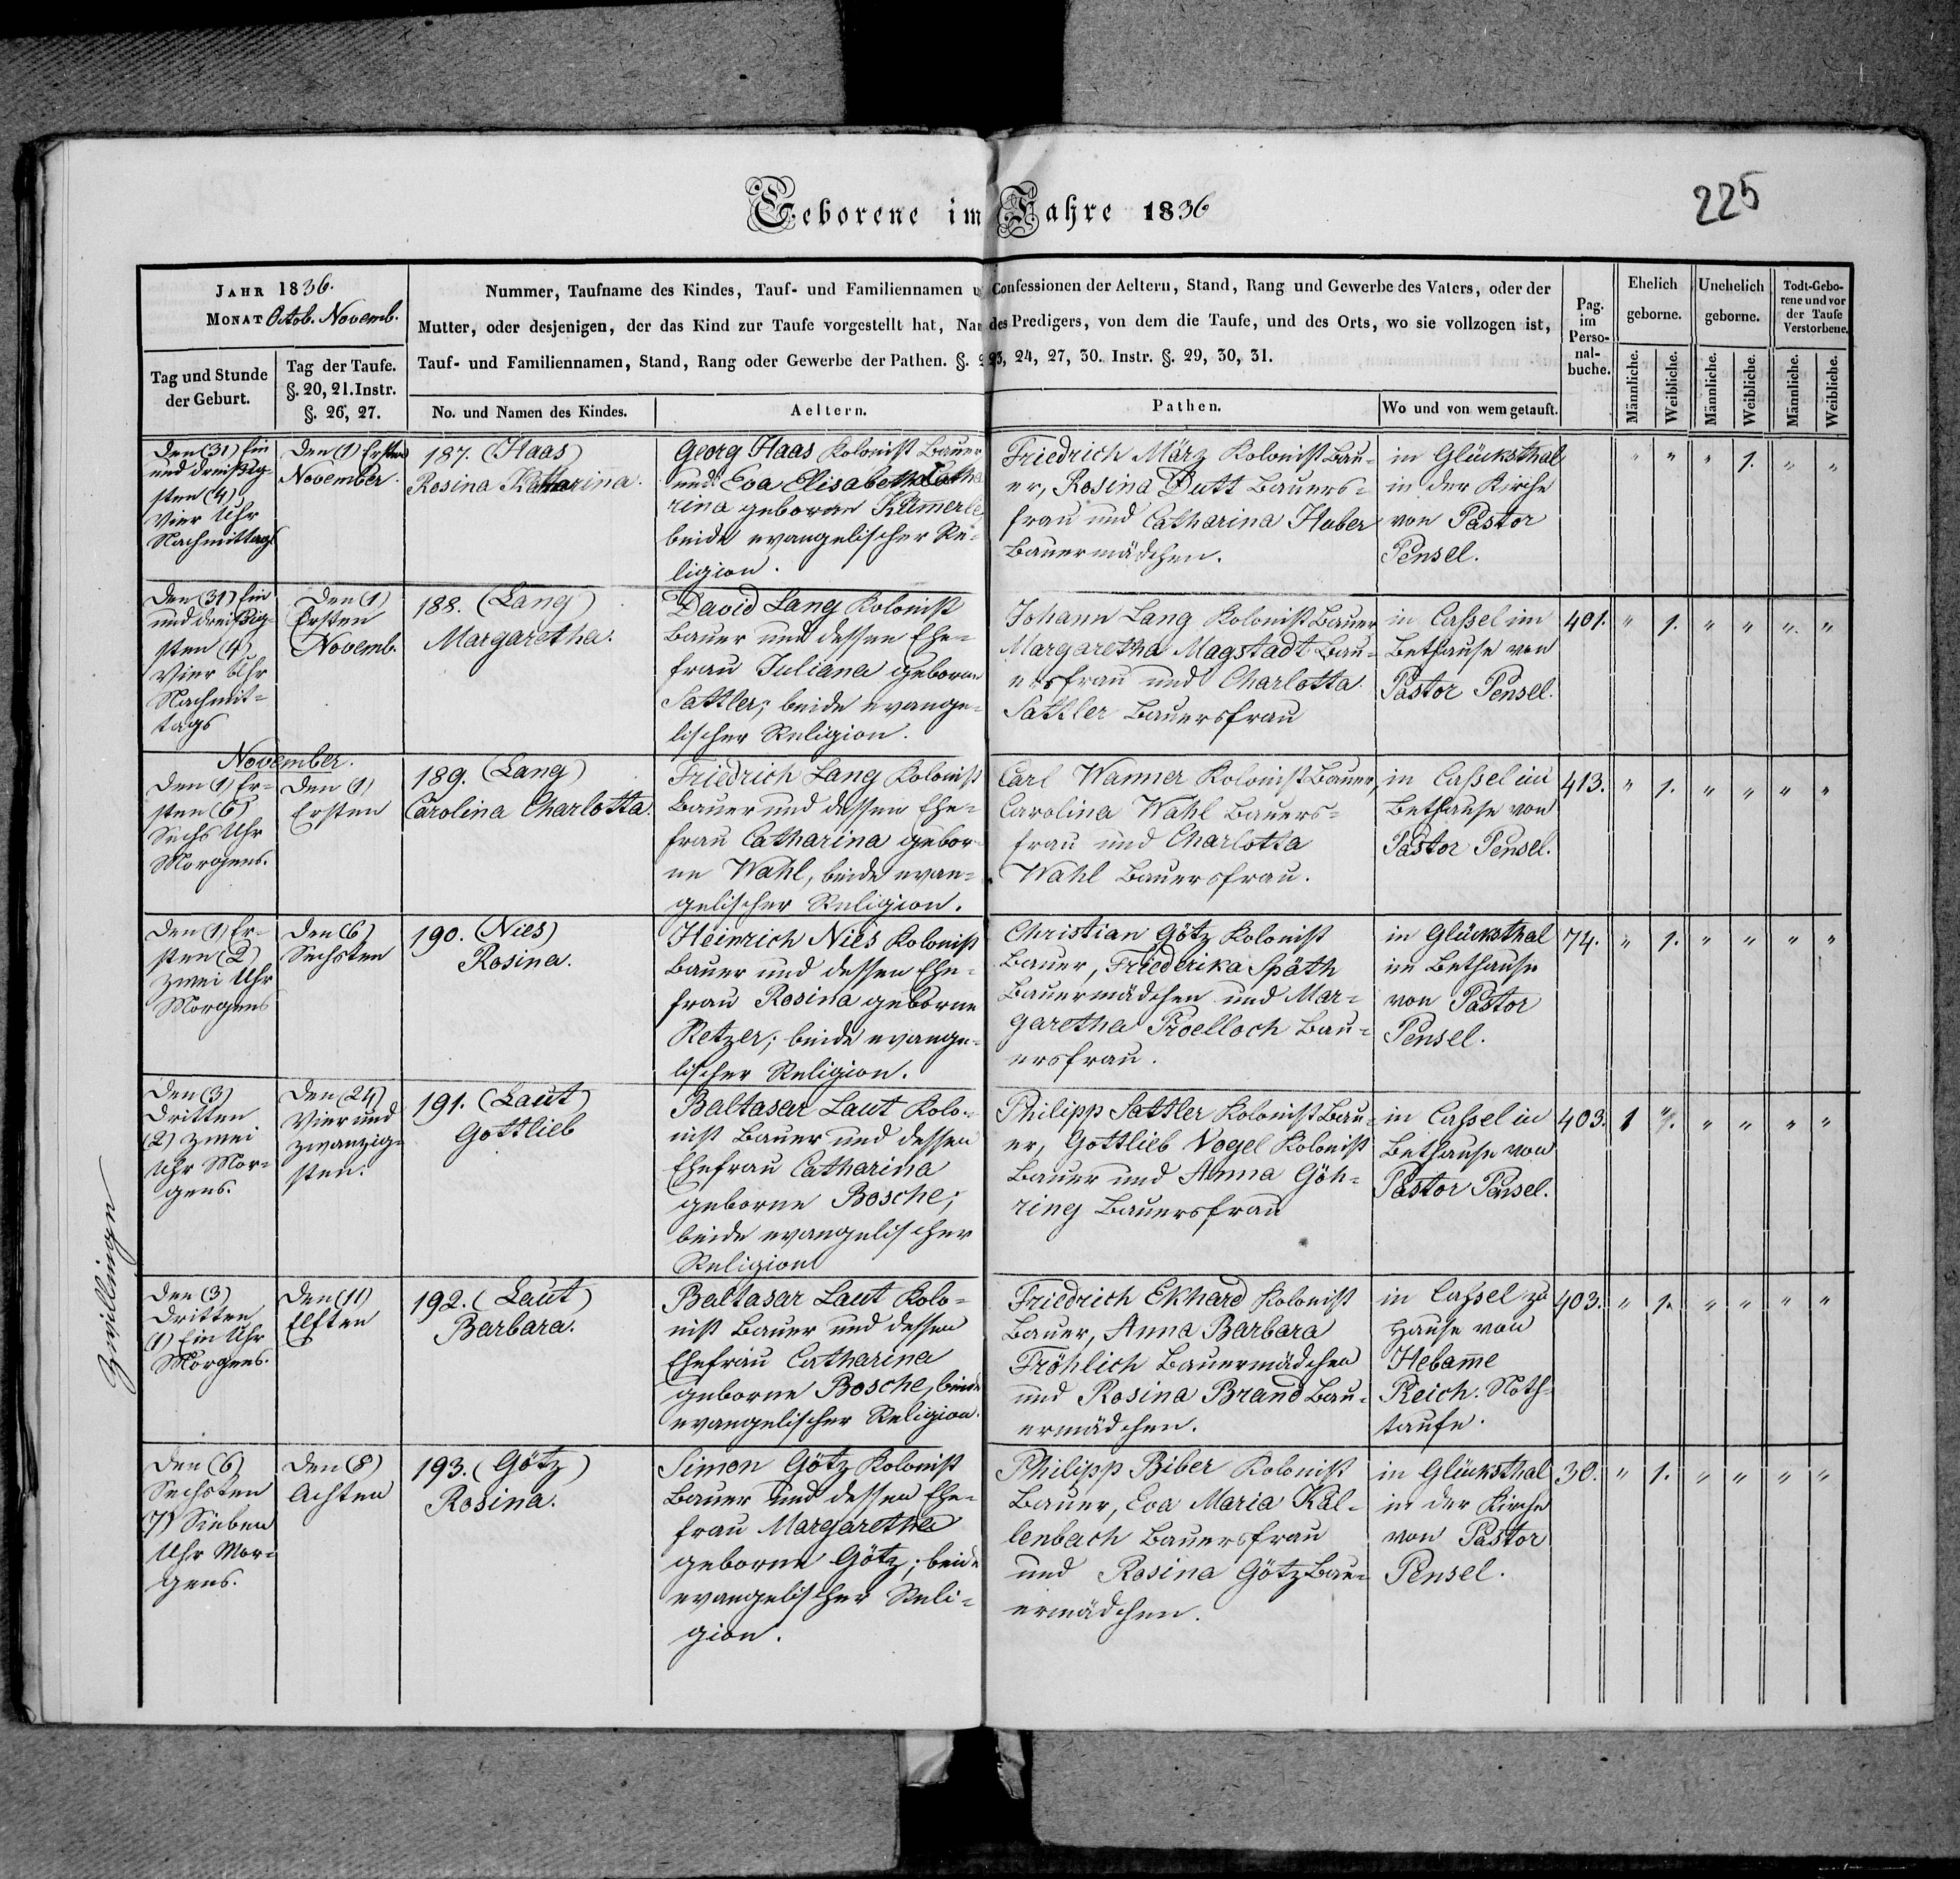 Geborene im Jahre 1836
225
JAHR 1836.
MONAT Octob. Novemb.
Tag und Stunde
der Geburt.
Tag der Taufe.
§. 20, 21. Instr.
§. 26, 27.
Nummer, Taufname des Kindes, Tauf- und Familiennamen u Confessionen der Aeltern, Stand, Rang und Gewerbe des Vaters, oder der
Mutter, oder desjenigen, der das Kind zur Taufe vorgestellt hat, Nam des Predigers, von dem die Taufe, und des Orts, wo sie vollzogen ist,
Tauf- und Familiennamen, Stand, Rang oder Gewerbe der Pathen. §. 23, 24, 27, 30. Instr. §. 29, 30, 31.
No. und Namen des Kindes.
Aeltern.
Pathen.
Wo und von wem getauft.
Pag.
im
Perso-
nal-
buche.
Ehelich
geborne.
Unehelich
geborne.
Todt-Gebo-
rene und vor
der Taufe
Verstorbene.
Männliche.
Weibliche.
Männliche.
Weibliche.
Männliche.
Weibliche.
Den (31) Ein
und dreißig-
sten (4)
Vier Uhr
Nachmittags
Den (1) Ersten
November.
187. (Haas)
Rosina Katharina.
Georg Haas Kolonist Bauer
und Eva Elisabetha Catha
rina geborne Kümerle
beide evangelischer Re-
ligion.
Friedrich März Kolonist Bau-
er, Rosina Dutt Bauers-
frau und Catharina Huber
Bauermädchen.
in Glücksthal
in der Kirche
von Pastor
Pensel.
" " " 1. " "
Den (31) Ein
und dreißig-
sten (4)
Vier Uhr
Nachmit-
tags
Den (1)
Ersten
Novemb.
188. (Lang)
Margaretha.
David Lang Kolonist
Bauer und dessen Ehe-
frau Juliana geborne
Sattler; beide evange-
lischer Religion.
Johann Lang Kolonist Bauer
Margaretha Magstadt Bau-
ersfrau und Charlotta
Sattler Bauersfrau
in Caßel im
Bethause von
Pastor Pensel.
401. " 1. " " " "
November.
Den (1) Er-
sten (6)
Sechs Uhr
Morgens.
Den (1)
Ersten
189. (Lang)
Carolina Charlotta.
Friedrich Lang Kolonist
Bauer und dessen Ehe-
frau Catharina gebor-
ne Wahl, beide evan-
gelischer Religion.
Carl Wanner Kolonist Bauer,
Carolina Wahl Bauers-
frau und Charlotta
Wahl Bauersfrau.
in Caßel im
Bethause von
Pastor Pensel.
413. " 1. " " " "
Den (1) Er-
sten (2)
Zwei Uhr
Morgens
Den (6)
Sechsten
190. (Nies)
Rosina.
Heinrich Nies Kolonist
Bauer und dessen Ehe-
frau Rosina geborne
Retzer; beide evange-
lischer Religion.
Christian Götz Kolonist
Bauer, Friederika Späth
Bauermädchen und Mar-
garetha Proelloch Bau-
ersfrau.
in Glücksthal
im Bethause
von Pastor
Pensel.
74. " 1. " " " "
Zwillingen
Den (3)
Dritten
(2) Zwei
Uhr Mor-
gens.
Den (24)
Vier und
zwanzig-
sten.
191. (Laut)
Gottlieb
Baltasar Laut Kolo-
nist Bauer und dessen
Ehefrau Catharina
geborne Bosche;
beide evangelischer
Religion
Philipp Sattler Kolonist Bau-
er, Gottlieb Vogel Kolonist
Bauer und Anna Göh-
ring Bauersfrau
in Caßel im
Bethause von
Pastor Pensel.
403. 1 " " " " "
Den (3)
Dritten
(1) Ein Uhr
Morgens.
Den (11)
Elften
192. (Laut)
Barbara.
Baltasar Laut Kolo-
nist Bauer und dessen
Ehefrau Catharina
geborne Bosche, beide
evangelischer Religion.
Friedrich Ekhard Kolonist
Bauer, Anna Barbara
Fröhlich Bauermädchen
und Rosina Brand Bau-
ermädchen.
in Caßel zu
Hause von
Hebam̄e
Reich. Noth-
taufe.
403. " 1. " " " "
Den (6)
Sechsten
(7) Sieben
Uhr Mor-
gens.
Den (8)
Achten
193. (Götz)
Rosina.
Simon Götz Kolonist
Bauer und dessen Ehe-
frau Margaretha
geborne Götz; beide
evangelischer Reli-
gion.
Philipp Biber Kolonist
Bauer, Eva Maria Kal-
lenbach Bauersfrau
und Rosina Götz Bau-
ermädchen.
in Glücksthal
in der Kirche
von Pastor
Pensel.
30. " 1. " " " "